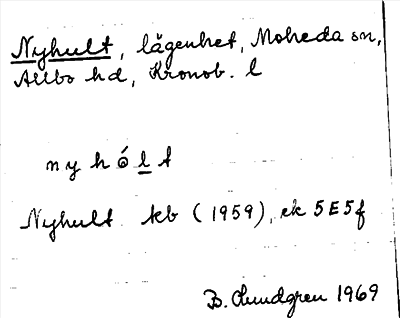 Nyhult, lägenhet, Moheda sn,
Allbo hd, Kronob. l
nyhólt
Nyhult kb (1959), ek 5E5f
B. Lundgren 1969